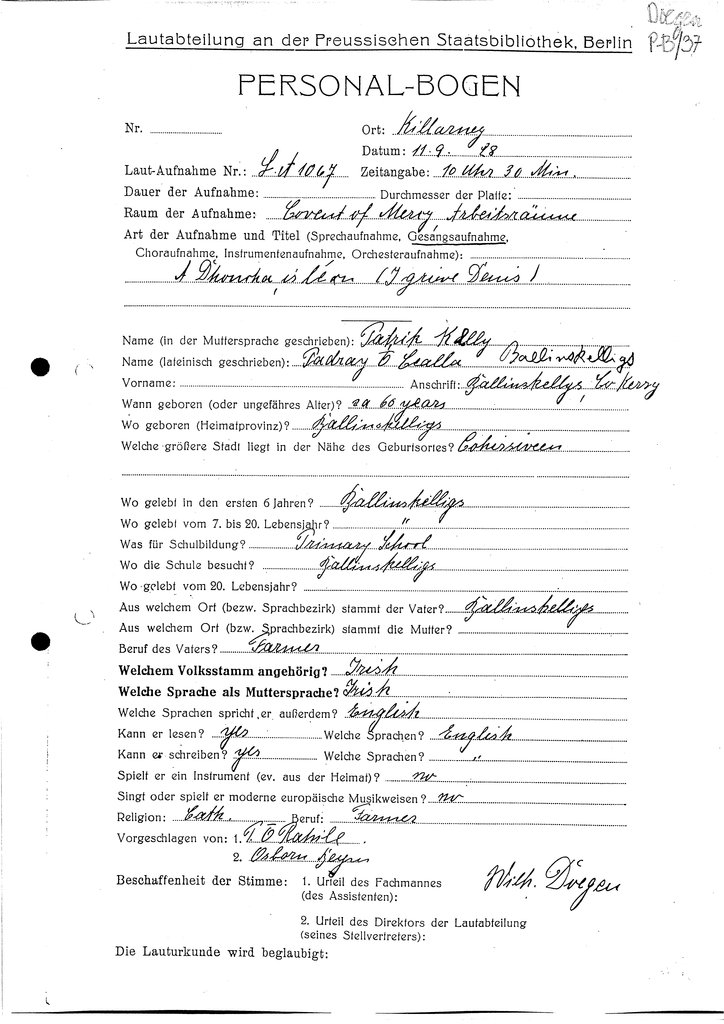 Doegen
P-B9/37
Lautabteilung an der Preussischen Staatsbibliothek, Berlin
PERSONAL-BOGEN
Nr.
Ort: Killarney
Datum: 11.9. 28
Laut-Aufnahme Nr.: LA 1067 Zeitangabe: 10 Uhr 30 Min.
Dauer der Aufnahme: Durchmesser der Platte:
Raum der Aufnahme: Covent of Mercy Arbeitsräume
Art der Aufnahme und Titel (Sprechaufnahme, Gesangsaufnahme,
Choraufnahme, Instrumentenaufnahme, Orchesteraufnahme):
A Dhoncha, is léan (I grieve Denis)
Name (in der Muttersprache geschrieben): Patrik Kelly
Name (lateinisch geschrieben): Padray O Cealla Ballinskelligs
Vorname: Anschrift: Ballinskellys, Co Kerry
Wann geboren (oder ungefähres Alter)? ca 60 years
Wo geboren (Heimatprovinz)? Ballinskelligs
Welche größere Stadt liegt in der Nähe des Geburtsortes? Cohirsiveen
Wo gelebt in den ersten 6 Jahren? Ballinskelligs
Wo gelebt vom 7. bis 20. Lebensjahr? "
Was für Schulbildung? Primary School
Wo die Schule besucht? Ballinskelligs
Wo gelebt vom 20. Lebensjahr?
Aus welchem Ort (bezw. Sprachbezirk) stammt der Vater? Ballinskelligs
Aus welchem Ort (bzw. Sprachbezirk) stammt die Mutter?
Beruf des Vaters? Farmer
Welchem Volksstamm angehörig? Irish
Welche Sprache als Muttersprache? Irish
Welche Sprachen spricht er außerdem? English
Kann er lesen? yes Welche Sprachen? English
Kann er schreiben? yes Welche Sprachen? "
Spielt er ein Instrument (ev. aus der Heimat)? no
Singt oder spielt er moderne europäische Musikweisen? no
Religion: Cath. Beruf: Farmer
Vorgeschlagen von: 1. T. O Rahile.
2. Osborn
Beschaffenheit der Stimme: 1. Urteil des Fachmannes
(des Assistenten):
Wilh. Doegen
2. Urteil des Direktors der Lautabteilung
(seines Stellvertreters):
Die Lauturkunde wird beglaubigt: